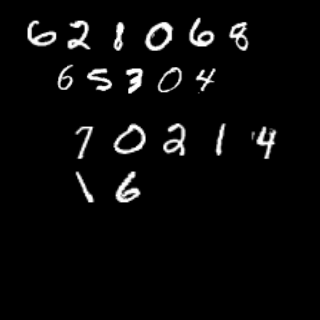 621068
65304
70214
16